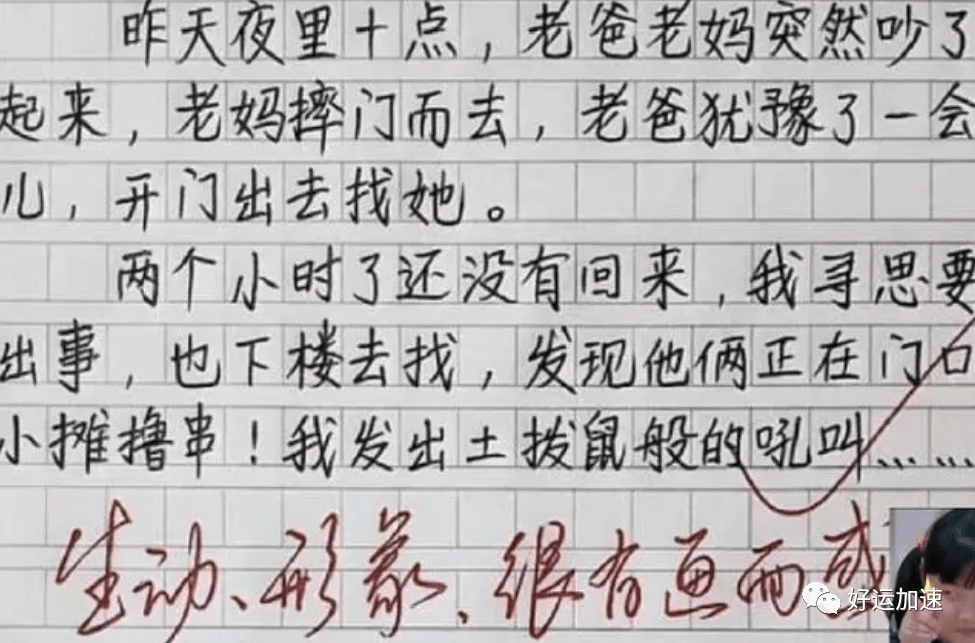 昨天夜里十点，老爸老妈突然吵了
起来，老妈摔门而去，老爸犹豫了一会
儿，开门出去找她。
两个小时了还没有回来，我寻思要
出事，也下楼去找，发现他俩正在门口
小摊撸串！我发出土拨鼠般的吼叫……
生动、形象、很有画面感
好运加速